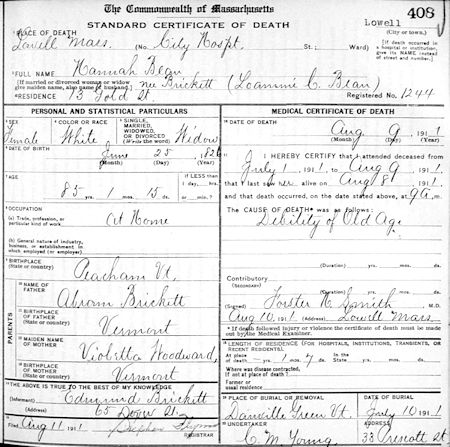 The Commonwealth of Massachusetts
408
STANDARD CERTIFICATE OF DEATH
Lowell
(City or town.)
PLACE OF DEATH
Lowell Mass. (No. City Hospt. St.; Ward)
[If death occurred in a hospital or institution, give its NAME instead of street and number.]
FULL NAME Hannah Bean
[If married or divorced woman or widow give maiden name, also name of husband.] née Brickett (Loammi C. Bean)
RESIDENCE 13 St Registered No. 1244
PERSONAL AND STATISTICAL PARTICULARS
SEX Female
COLOR OR RACE White
SINGLE, MARRIED, WIDOWED, OR DIVORCED (Write the word) Widow
DATE OF BIRTH June 25 1826
(Month) (Day) (Year)
AGE 85 yrs. 1 mos. 15 ds.
If LESS than 1 day, hrs. or min.
OCCUPATION
(a) Trade, profession, or particular kind of work At Home
(b) General nature of industry, business, or establishment in which employed (or employer).
BIRTHPLACE (State or country) Peacham Vt.
PARENTS
NAME OF FATHER Abrom Brickett
BIRTHPLACE OF FATHER (State or country) Vermont
MAIDEN NAME OF MOTHER Violitta Woodward
BIRTHPLACE OF MOTHER (State or country) Vermont
THE ABOVE IS TRUE TO THE BEST OF MY KNOWLEDGE
(Informant) Edmund Brickett
(Address) 65 St.
Filed Aug 11 1911 Stephen Flynn
REGISTRAR
MEDICAL CERTIFICATE OF DEATH
DATE OF DEATH Aug 9 1911
(Month) (Day) (Year)
I HEREBY CERTIFY that I attended deceased from
July 1 1911 to Aug 9 1911
that I last saw her alive on Aug 8 1911
and that death occurred, on the date stated above, at 9 a m.
The CAUSE OF DEATH* was as follows:
Debility of Old Age
(Duration) yrs. mos. ds.
Contributory (Secondary)
(Duration) yrs. mos. ds.
(Signed) Forster H. Smith M.D.
Aug 10 1911 (Address) Lowell Mass
* If death followed injury or violence the certificate of death must be made out by the Medical Examiner.
LENGTH OF RESIDENCE (FOR HOSPITALS, INSTITUTIONS, TRANSIENTS, OR RECENT RESIDENTS).
At place of death yrs. 1 mos. 7 ds. In the State yrs. mos. ds.
Where was disease contracted, if not at place of death?
Former or usual residence
PLACE OF BURIAL OR REMOVAL Danville Green Vt.
DATE OF BURIAL July 10 1911
UNDERTAKER C. M. Young
(ADDRESS) 33 Prescott St